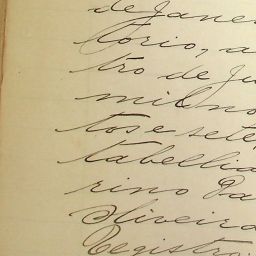 de Jane
torio, a
tro de Ju
mil no
tos e sete
tabellia
rino Pa
Oliveira
Registro